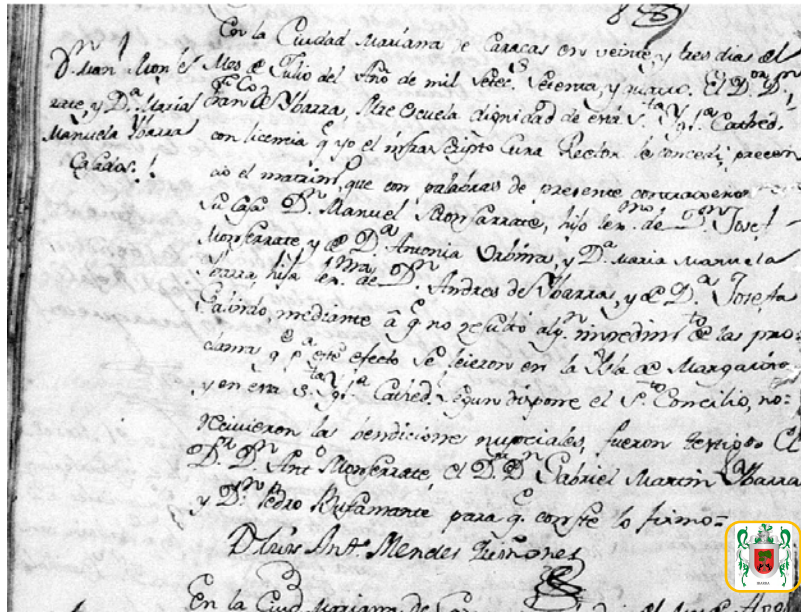 En la Ciudad Mariana de Caracas en veinte y tres dias del
Dn Man.l Mon=
rrate, y D.a Maria
Manuela Ybarra
Casados.
Mes de Julio del Año de mil setec.s setenta, y nueve. El D.or D.n
Fran.co de Ybarra, Mre escuela dignidad de esta S.ta Ygl.a Cathed.
con licencia q.e yo el infrascripto Cura Rector le concedi, presen
ció el matrim.o, que con palabras de presente contraxeron en
su casa D.n Manuel Monserrate, hijo lex.mo de D.n Josef
Monserrate y de D.a Antonia Urbina, y D.a Maria Manuela
Ybarra hija lex.ma de D.n Andres de Ybarra, y de D.a Josefa
Galindo, mediante á q.e no resultó alg.n impedim.to de las pro
clamas q.e p.a este efecto se leieron en la Ysla de Margarita,
y en esta S.ta Ygl.a Cathed. segun dispone el S.to Concilio, no=
recivieron las bendiciones nupciales, fueron testigos El
D.r D.n Ant.o Monserrate, el D.r D.n Gabriel Martin Ybarra
y D.n Pedro Bustamante para q.e conste lo firmo=
D. Luis Ant.o Mendes Quiñones
En la Ciud. Mariana de